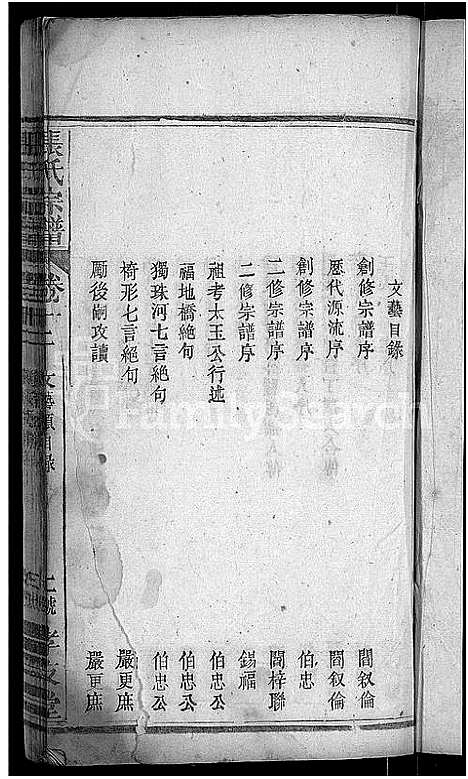 文藝目錄
創修宗譜序 閻叙倫
歷代源流序 閻叙倫
創修宗譜序 伯忠
二修宗譜序 閻梓聯
二修宗譜序 錫福
祖考太玉公行述 伯忠公
福地橋絕句 伯忠公
獨珠河七言絕句 伯忠公
椅形七言絕句 嚴更庶
勵後嗣攻讀 嚴更庶
張氏宗譜 卷十二 文藝類目錄 二號 孝友堂
FamilySearch